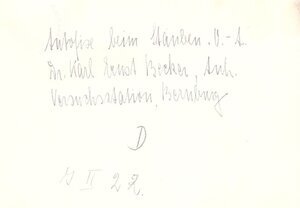 beim Stauben. V.-L.
Dr. Karl Ernst Becker, Anh.
Versuchsstation, Bernburg
D
II 22.